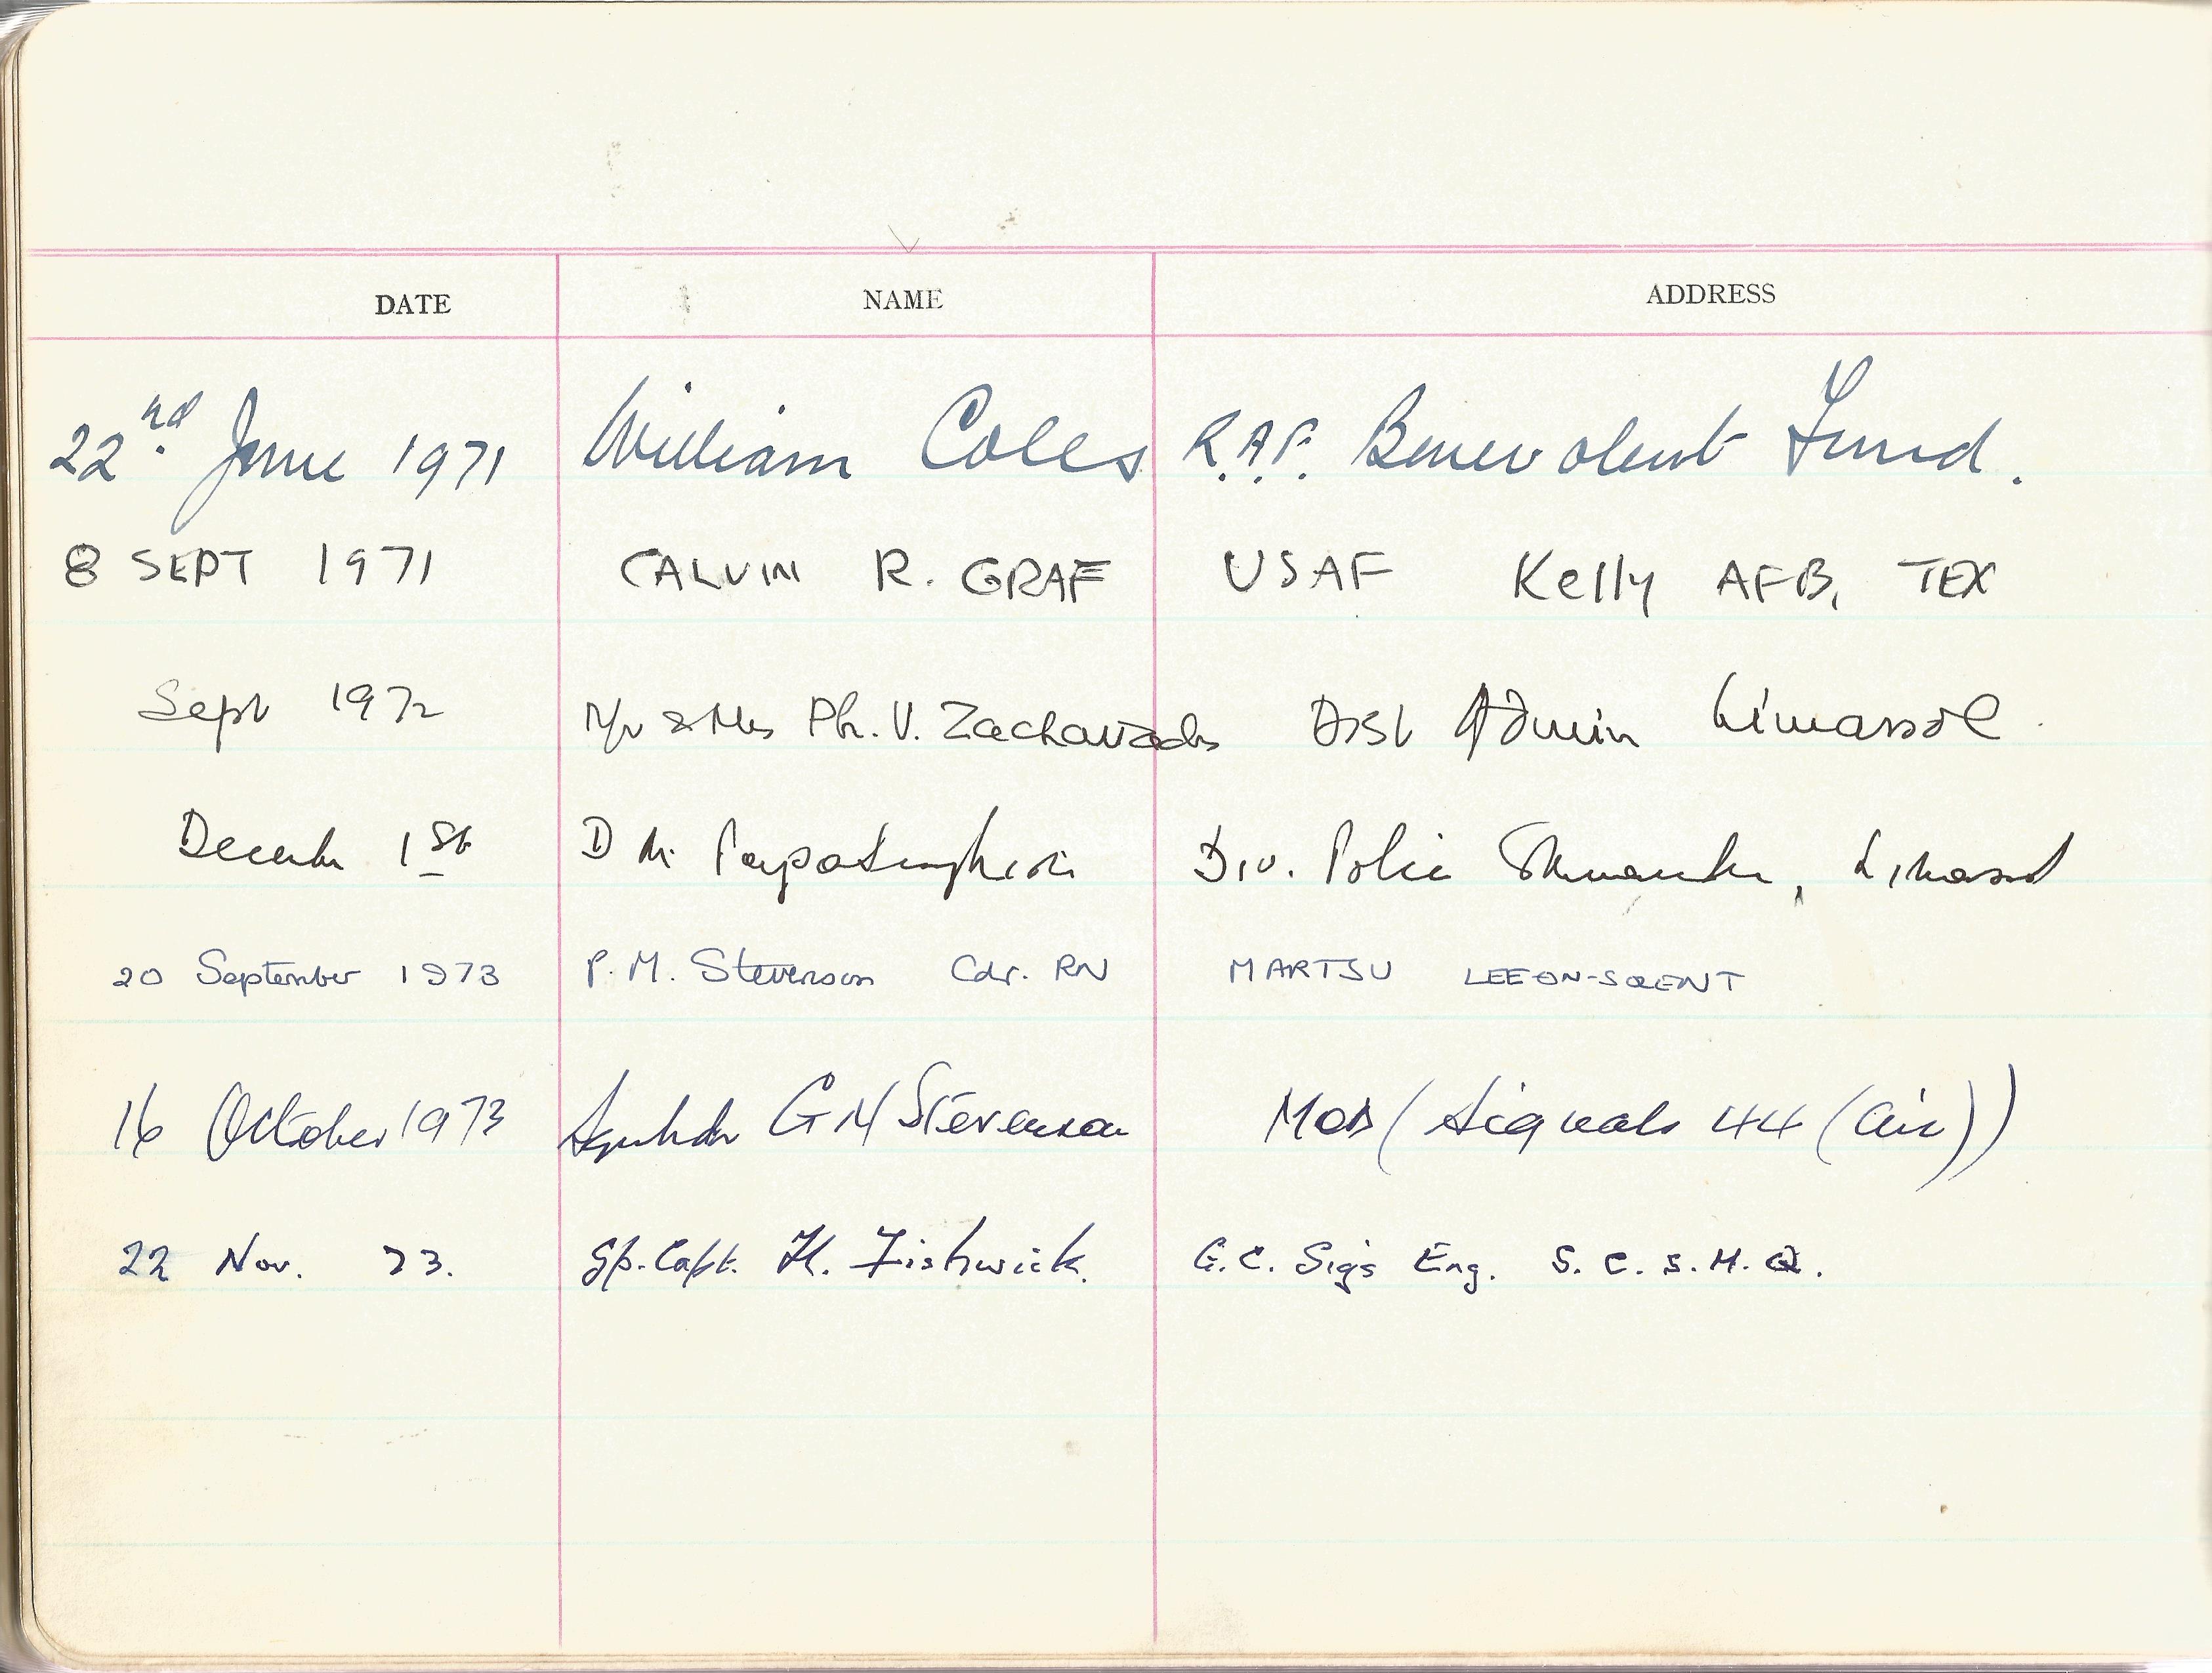 DATE NAME ADDRESS
22nd June 1971 William Coles R.A.F. Benevolent Fund.
8 SEPT 1971 CALVIN R. GRAF USAF Kelly AFB, TEX
Sept 1972 Mr & Mrs Ph. V. Zachariades Dist Admin Limassol.
December 1st D M Div. Police Commander, Limassol
20 September 1973 P. M. Stevenson Cdr. RN MARTSU LEE-ON-SOLENT
16 October 1973 Sqn Ldr G M Stevenson MOD (Signals 44 (Air))
22 Nov. 73. Gp. Capt. H. Fishwick. G.C. Sigs Eng. S.C.S.H.Q.